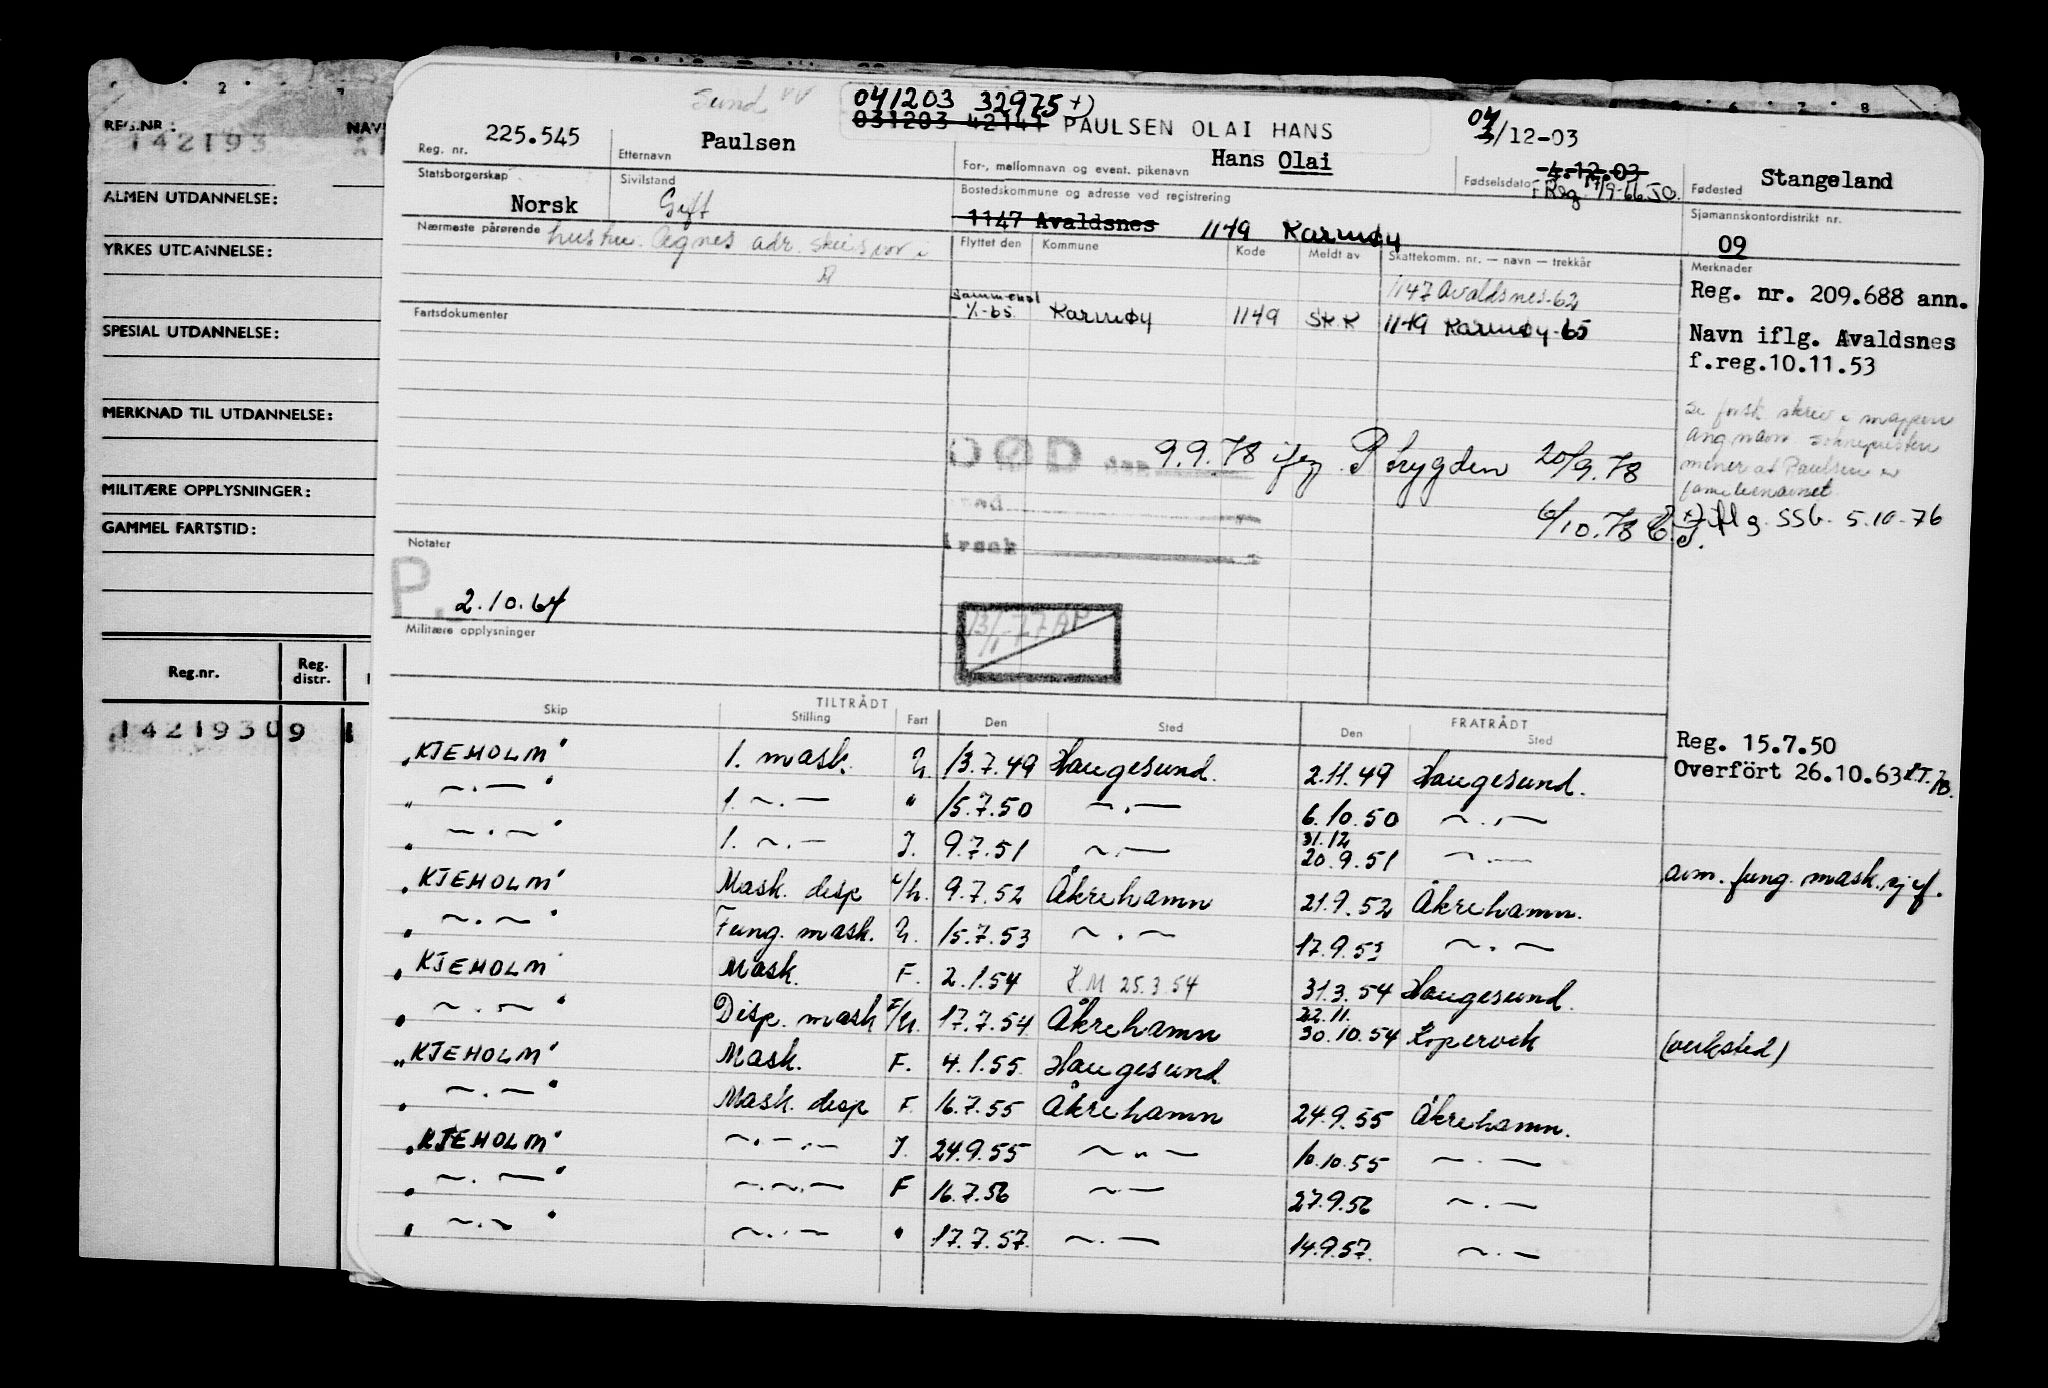 REG.NR.:
142193
NAV
ALMEN UTDANNELSE:
YRKES UTDANNELSE:
SPESIAL UTDANNELSE:
MERKNAD TIL UTDANNELSE:
MILITÆRE OPPLYSNINGER:
GAMMEL FARTSTID:
Reg.nr. Reg. distr.
14219309
Sund
041203 32975 +)
031203 42141 PAULSEN OLAI HANS
Reg. nr. 225.545
Etternavn Paulsen
For-, mellomnavn og event. pikenavn Hans Olai
04/12-03
Fødselsdato 4.12.03
Fødested Stangeland
Statsborgerskap Norsk
Sivilstand Gift
Bostedskommune og adresse ved registrering
1147 Avaldsnes 1149 Karmøy
Sjømannskontordistrikt nr.
09
Nærmeste pårørende hustru Agnes adr.
Flyttet den Kommune Kode Meldt av Skattekomm. nr. — navn — trekkår
1147 Avaldsnes-62
1/1-65 Karmøy 1149 SKK 1149 Karmøy-65
Merknader
Reg. nr. 209.688 ann.
Navn iflg. Avaldsnes
f.reg.10.11.53
Se forsk. skriv i mappen
ang navn. Soknepresten
mener at Paulsen er
familienavnet
+) iflg. SSB. 5.10-76
Fartsdokumenter
9.9.78 iflg. Trygden 20/9.78
6/10.78
Notater
P. 2.10.64
13/1-77 AP
Militære opplysninger
Skip TILTRÅDT Stilling Fart Den Sted FRATRÅDT Den Sted
"KJEHOLM" 1. mask. U 13.7.49 Haugesund. 2.11.49 Haugesund.
Reg. 15.7.50
" ~.— " 1. ~.— " 15.7.50 ~.— 6.10.50 ~.—
Overført 26.10.63
" ~.~ " 1. ~.— J. 9.7.51 ~.— 31.12 20.9.51 ~.—
"KJEHOLM" Mask. disp 9.7.52 Åkrehamn 21.9.52 Åkrehamn.
avm. fung. mask.
" ~.~ " Fung. mask. U. 15.7.53 ~.— 17.9.53 ~.—
"KJEHOLM" Mask. F. 2.1.54 25.3.54 31.3.54 Haugesund.
" ~.~ " Disp. mask F/U. 17.7.54 Åkrehamn 22.11. 30.10.54 Kopervik (verksted)
"KJEHOLM" Mask. F. 4.1.55 Haugesund
" ~.— " Mask. disp F. 16.7.55 Åkrehamn 24.9.55 Åkrehamn.
"KJEHOLM" ~.—.— J. 24.9.55 ~ " ~ 10.10.55 ~.—
" ~.— " ~.~.— F 16.7.56 ~.— 27.9.56 ~.—
" ~.~ " ~.~.— " 17.7.57. ~.— 14.9.57. ~.—